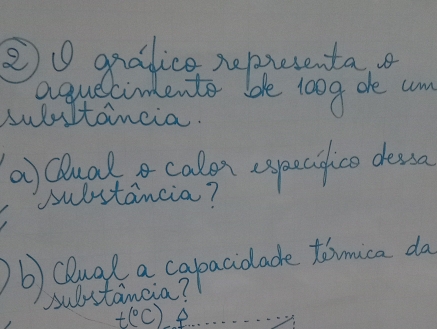 2) O gráfico representa o
aquecimento de 100g de um
substância.
a) Qual o calor específico dessa
substância?
b) Qual a capacidade térmica da
substância?
t(°C)